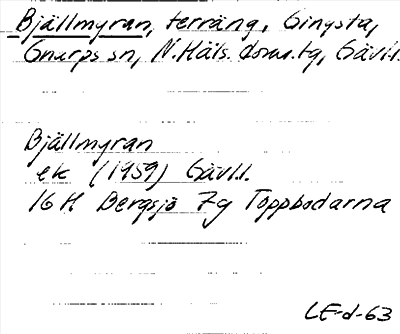 Bjällmyran, terräng, Gingsta,
Gnarps sn, N.Häls. doms.tg, Gävl.l.
Bjällmyran
ek (1959) Gävl.l.
16 H Bergsjö 7g Toppbodarna
LE-d-63